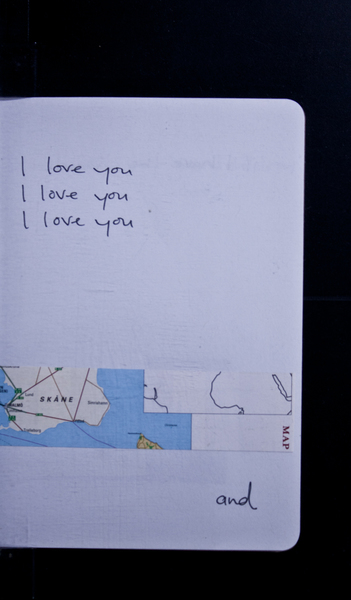 I love you
I love you
I love you
SKÅNE
MAP
and